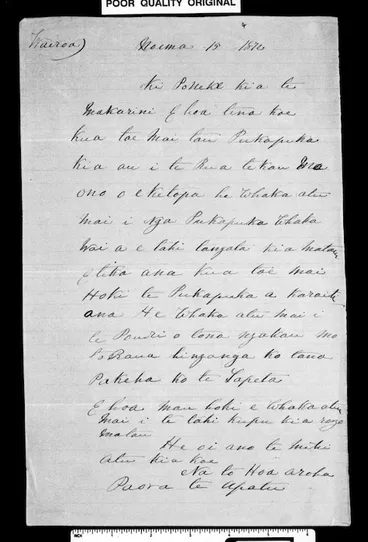 POOR QUALITY ORIGINAL
Wairoa) Noema 15 1876
Ki Poneke kia te
Makarini E hoa tena koe
kua tae mai tau Pukapuka
kia au i te Rua tekau ma
ono o eketopa he Whaka atu
mai i Nga Pukapuka Whaka
Wai a e tahi tangata kia Matau
E tika ana kua tae mai
Hoki te Pukapuka a
ana He Whaka atu mai i
te Pouri o tona ngakau mo
hinganga ko tana
Pakeha ko te Tapeta
E hoa mau hoki e Whaka atu
Mai i te tahi kupu kia rongo
matau
He oi ano te mihi
atu kia koe
Na to Hoa aroha
Paora te Apatu